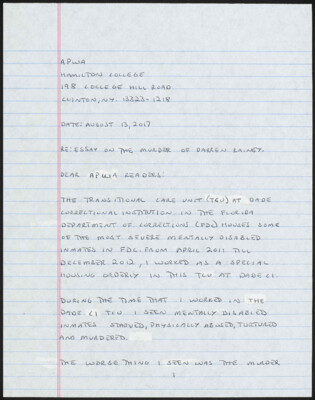 APWA
HAMILTON COLLEGE
198 COLLEGE HILL ROAD
CLINTON, N.Y. 13323-1218
DATE: AUGUST 13, 2017
RE: ESSAY ON THE MURDER OF DARREN RAINEY.
DEAR APWA READERS:
THE TRANSITIONAL CARE UNIT (TCU) AT DADE
CORRECTIONAL INSTITUTION IN THE FLORIDA
DEPARTMENT OF CORRECTIONS (FDC) HOUSES SOME
OF THE MOST SEVERE MENTALLY DISABLED
INMATES IN FDC. FROM APRIL 2011 TILL
DECEMBER 2012, I WORKED AS A SPECIAL
HOUSING ORDERLY IN THIS TCU AT DADE CI.
DURING THE TIME THAT I WORKED IN THE
DADE CI TCU I SEEN MENTALLY DISABLED
INMATES STARVED, PHYSICALLY ABUSED, TORTURED
AND MURDERED.
THE WORSE THING I SEEN WAS THE MURDER
1